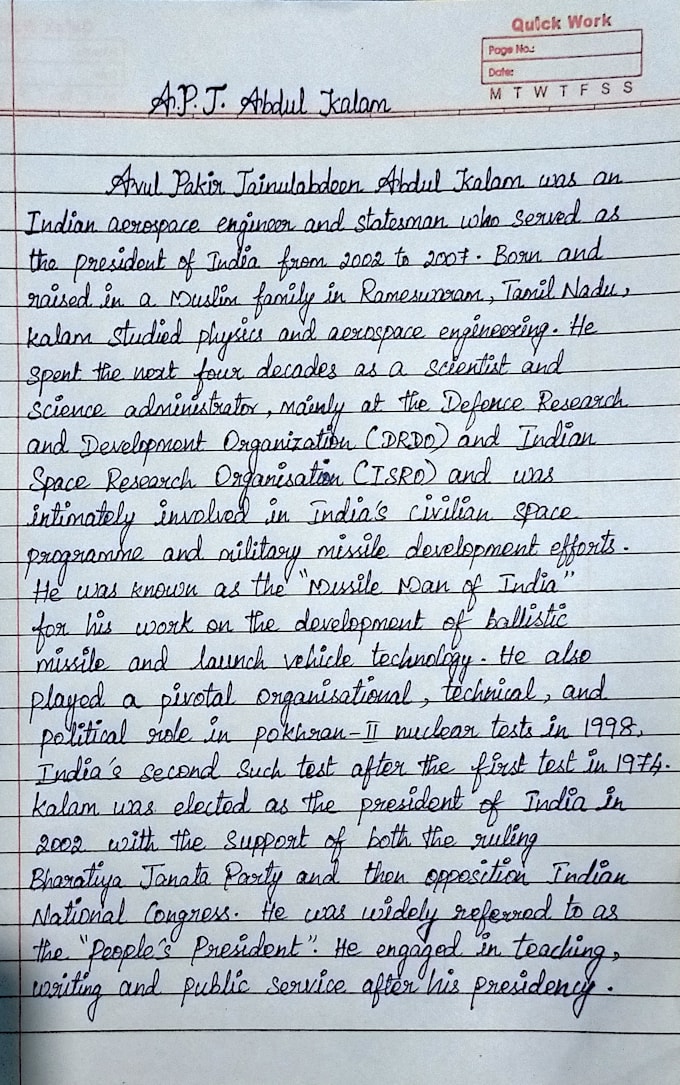 Quick Work
Page No.:
Date:
M T W T F S S
A.P.J. Abdul Kalam
Avul Pakir Jainulabdeen Abdul Kalam was an
Indian aerospace engineer and statesman who served as
the president of India from 2002 to 2007. Born and
raised in a Muslim family in Rameswaram, Tamil Nadu,
kalam studied physics and aerospace engineering. He
spent the next four decades as a scientist and
science administrator, mainly at the Defence Research
and Development Organization (DRDO) and Indian
Space Research Organisation (ISRO) and was
intimately involved in India's civilian space
programme and military missile development efforts.
He was known as the "Missile Man of India"
for his work on the development of ballistic
missile and launch vehicle technology. He also
played a pivotal organisational, technical, and
political role in pokhran-II nuclear tests in 1998,
India's second such test after the first test in 1974.
kalam was elected as the president of India in
2002 with the support of both the ruling
Bharatiya Janata Party and then opposition Indian
National Congress. He was widely referred to as
the "People's President". He engaged in teaching,
writing and public service after his presidency.